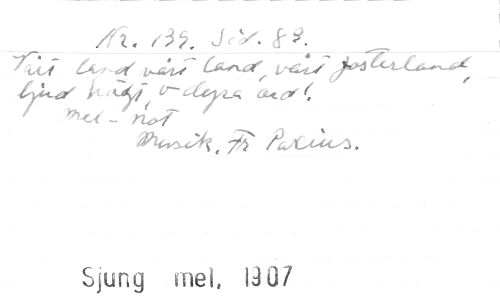 Nr. 139. Sid. 83.
Vårt land, vårt land, vårt fosterland,
ljud högt, o dyra ord!
mel - not
Musik. Fr Pacius.
Sjung mel, 1907